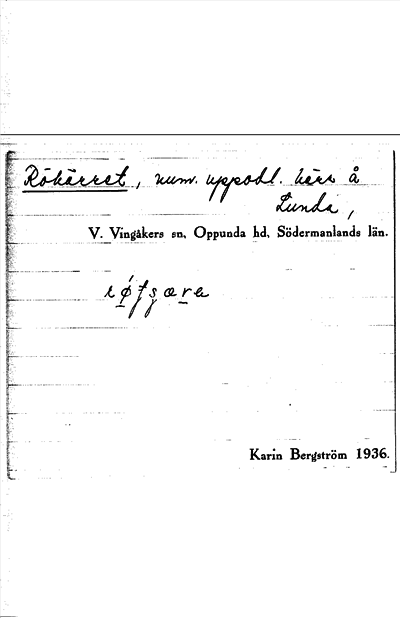 Rökärret, num. uppodl. kärr å
Lunda,
V. Vingåkers sn, Oppunda hd, Södermanlands län.
Karin Bergström 1936.